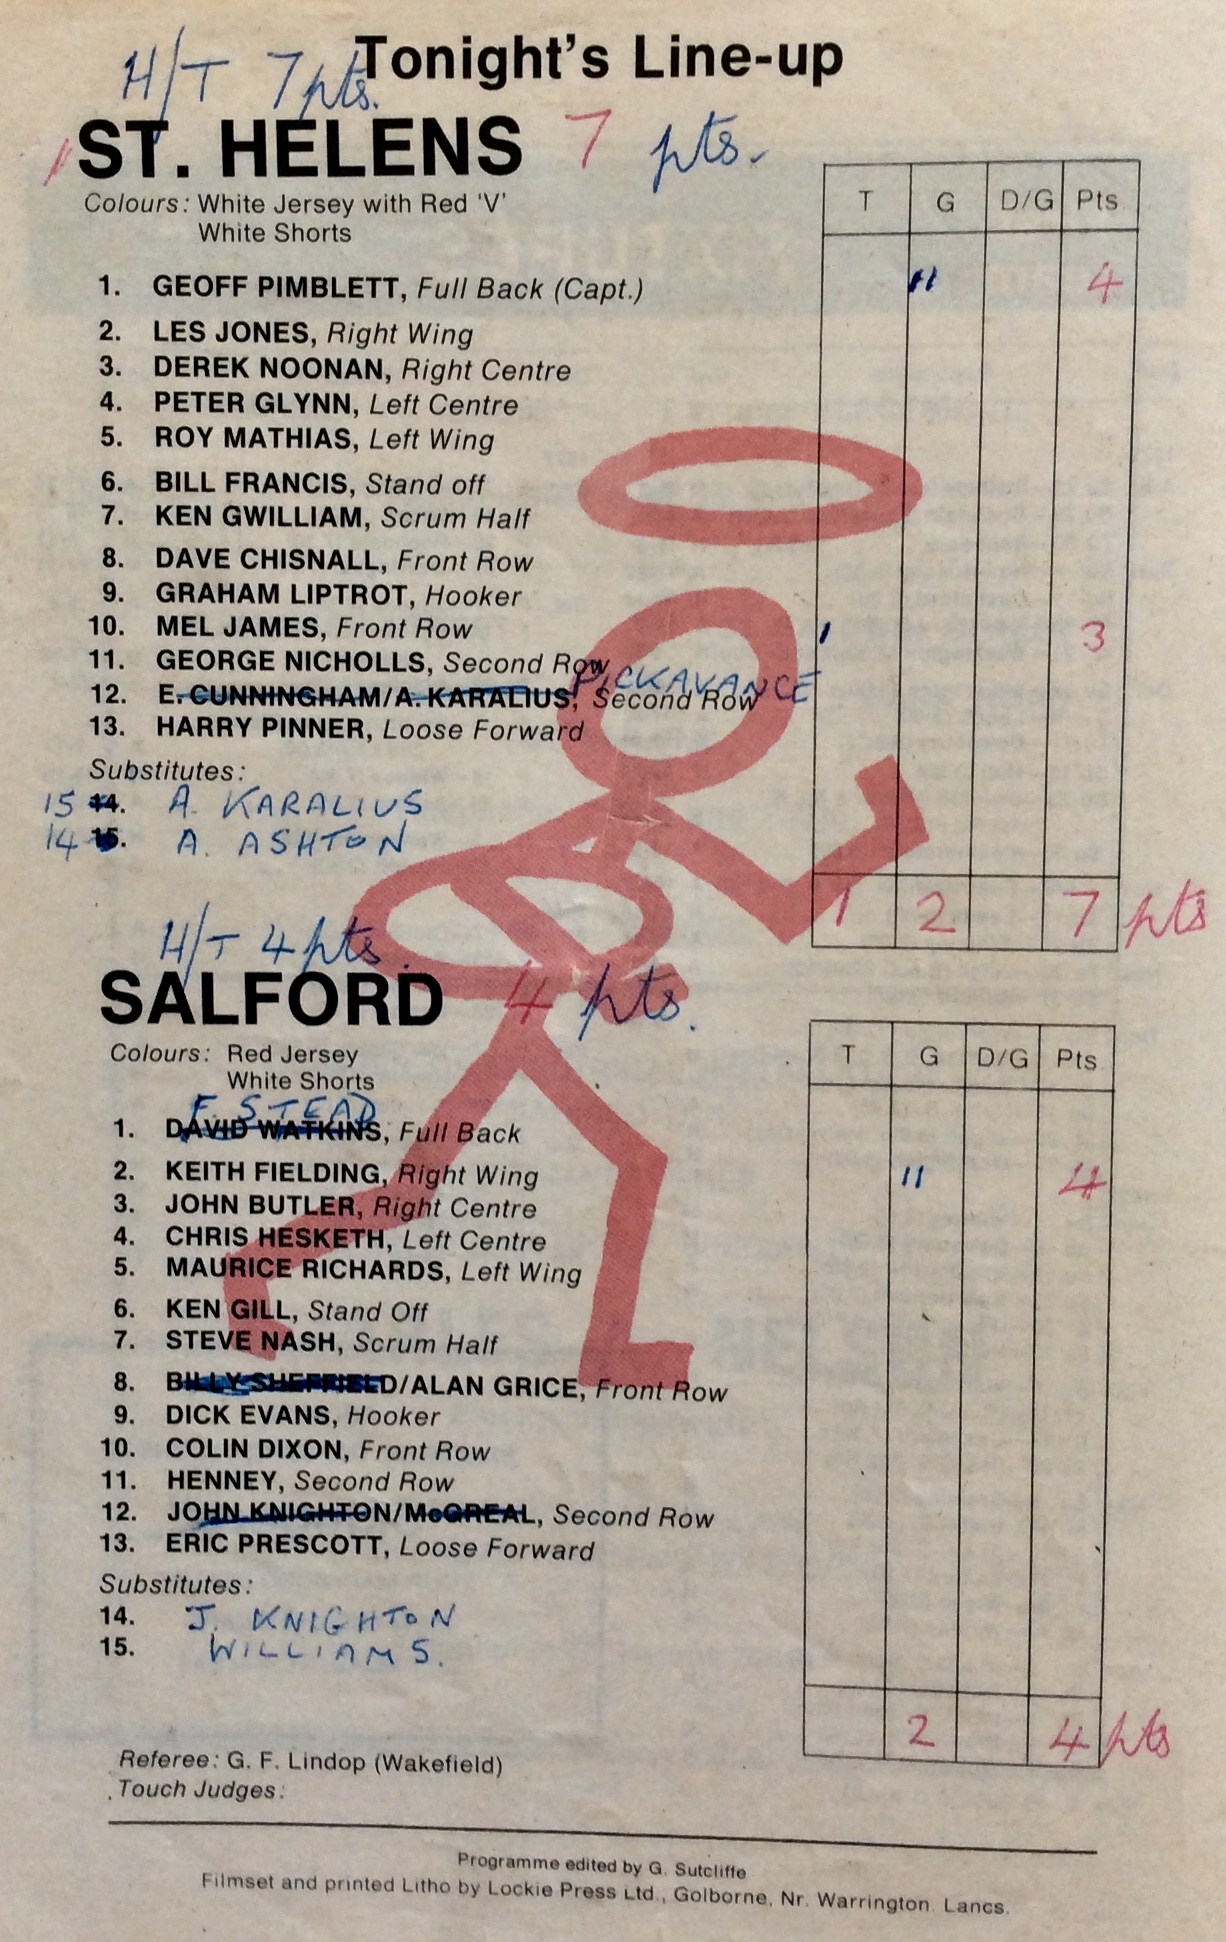 Tonight's Line-up
H/T 7 pts.
ST. HELENS 7 pts.
Colours: White Jersey with Red 'V'
White Shorts
T G D/G Pts
1. GEOFF PIMBLETT, Full Back (Capt.) 11 4
2. LES JONES, Right Wing
3. DEREK NOONAN, Right Centre
4. PETER GLYNN, Left Centre
5. ROY MATHIAS, Left Wing
6. BILL FRANCIS, Stand off
7. KEN GWILLIAM, Scrum Half
8. DAVE CHISNALL, Front Row
9. GRAHAM LIPTROT, Hooker
10. MEL JAMES, Front Row 1 3
11. GEORGE NICHOLLS, Second Row
PICKAVANCE
12. E. CUNNINGHAM/A. KARALIUS, Second Row
13. HARRY PINNER, Loose Forward
Substitutes:
15 14. A. KARALIUS
14 15. A. ASHTON
1 2 7 pts
H/T 4 pts.
SALFORD 4 pts.
Colours: Red Jersey
White Shorts
T G D/G Pts
F. STEAD
1. DAVID WATKINS, Full Back
2. KEITH FIELDING, Right Wing 11 4
3. JOHN BUTLER, Right Centre
4. CHRIS HESKETH, Left Centre
5. MAURICE RICHARDS, Left Wing
6. KEN GILL, Stand Off
7. STEVE NASH, Scrum Half
8. BILLY SHEFFIELD/ALAN GRICE, Front Row
9. DICK EVANS, Hooker
10. COLIN DIXON, Front Row
11. HENNEY, Second Row
12. JOHN KNIGHTON/McGREAL, Second Row
13. ERIC PRESCOTT, Loose Forward
Substitutes:
14. J. KNIGHTON
15. WILLIAMS.
2 4 pts
Referee: G. F. Lindop (Wakefield)
Touch Judges:
Programme edited by G. Sutcliffe
Filmset and printed Litho by Lockie Press Ltd., Golborne, Nr. Warrington. Lancs.